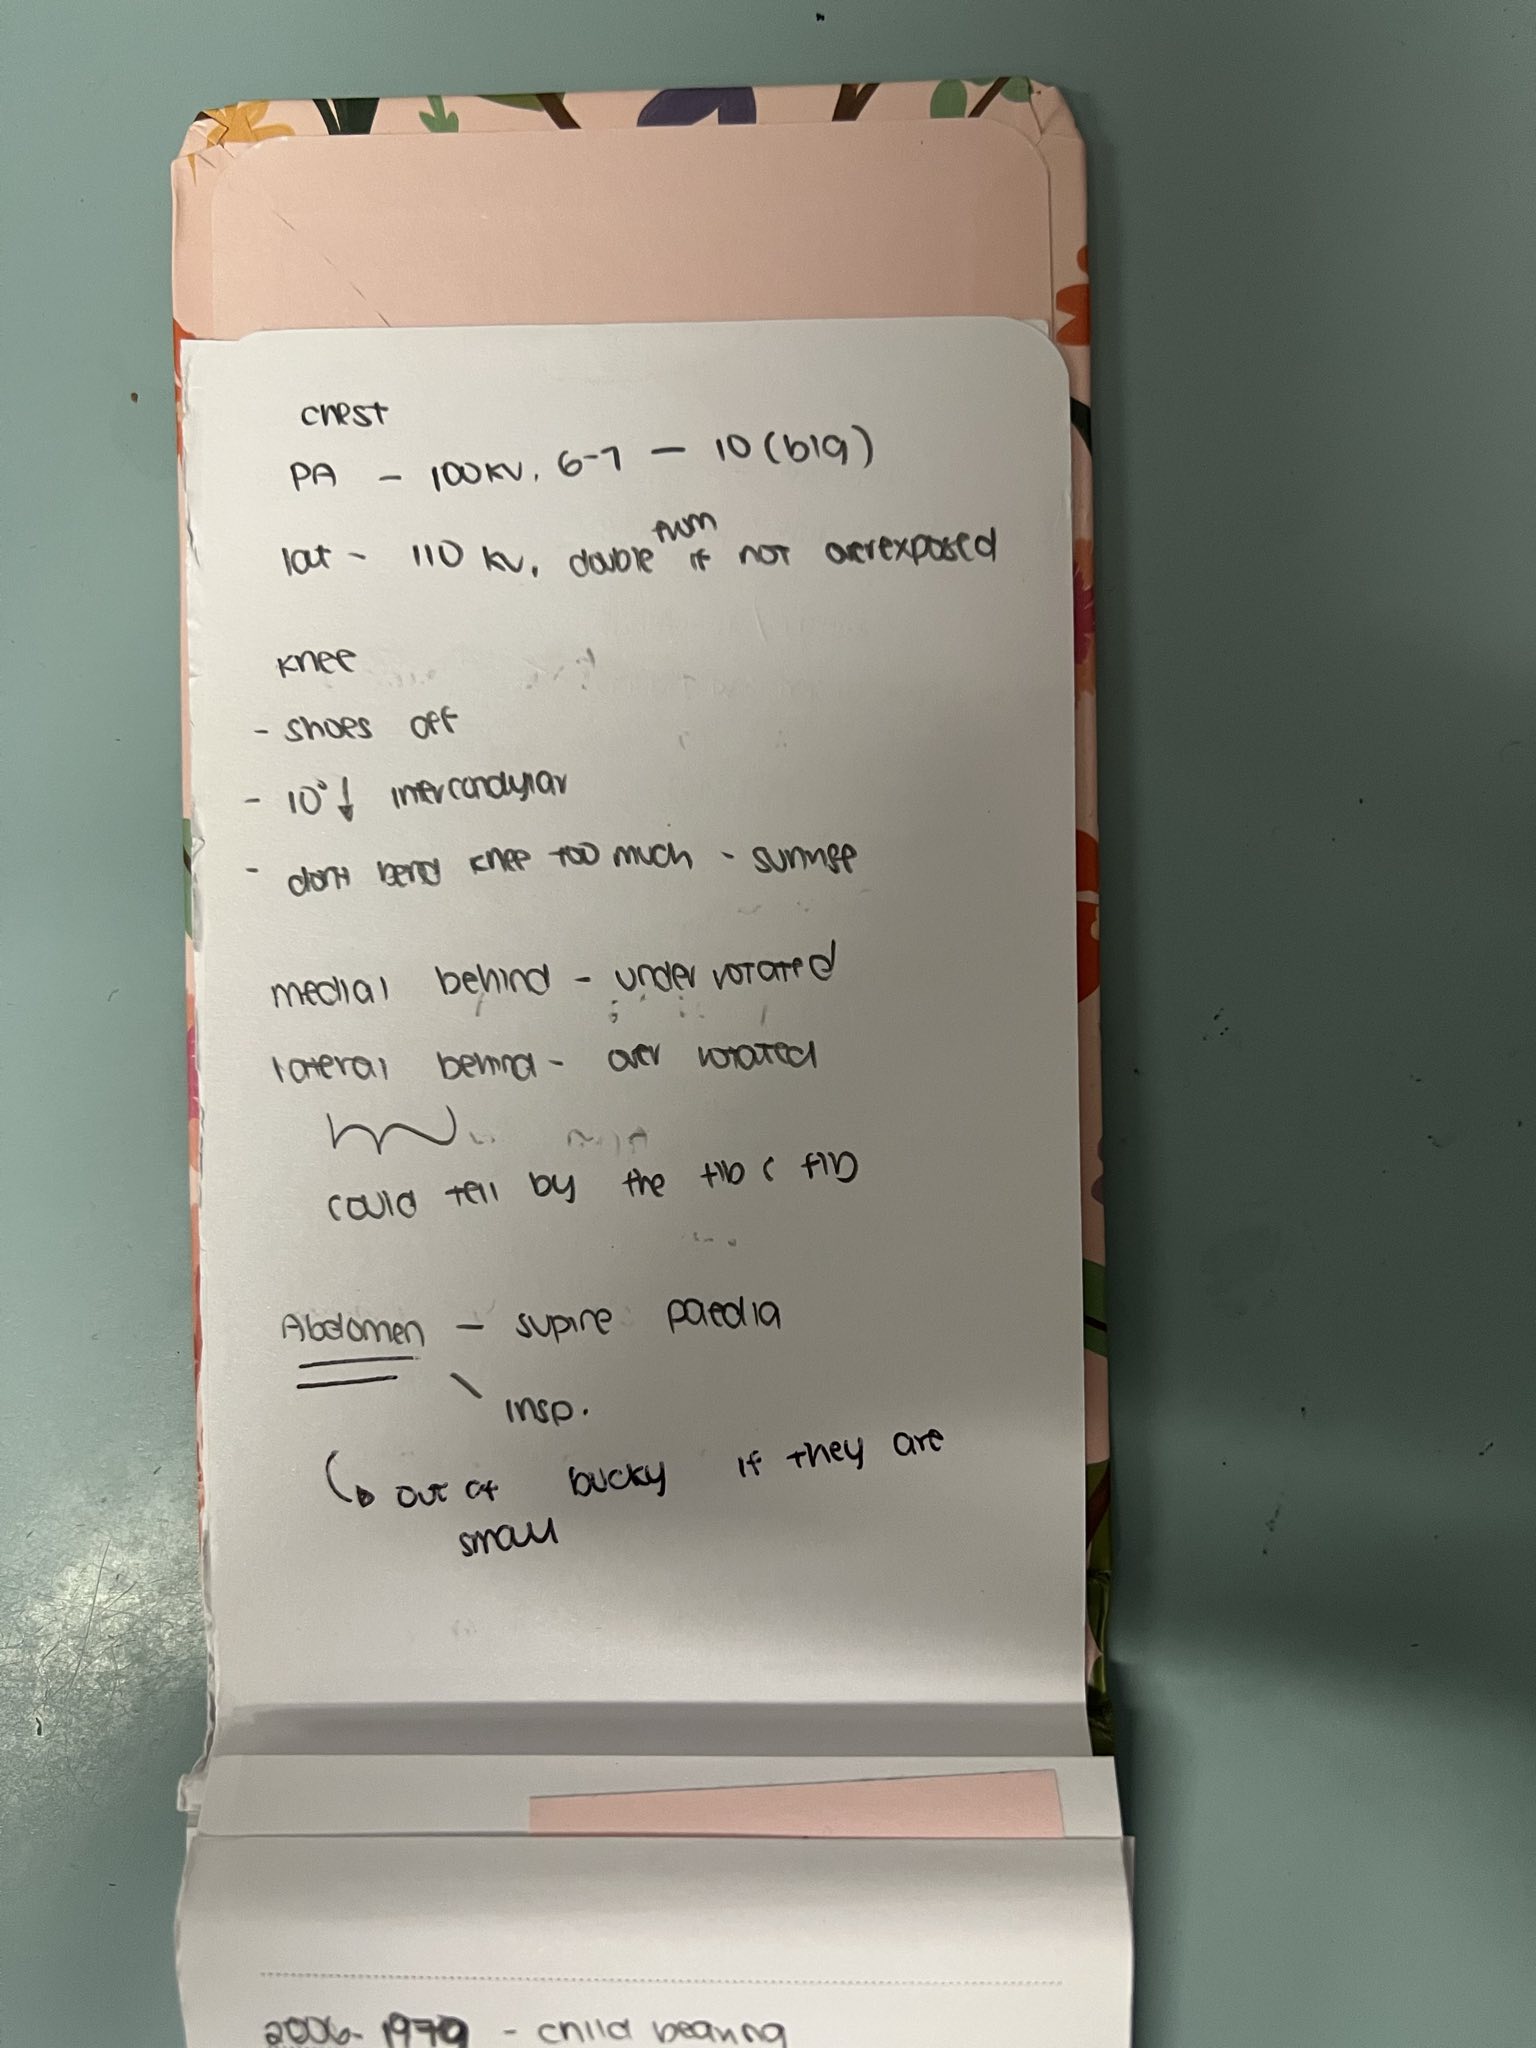 chest
PA - 100KV. 6-7 - 10 (big)
lat - 110 KV. double from if not overexposed
Knee
- shoes off
- 10° ↓ intercondylar
- dont bend knee too much - sunrise
medial behind - under rotated
lateral behind - over rotated
could tell by the tib & fib
Abdomen - supine paedia
insp.
↳ out of bucky if they are
small
2006 - 1970 - child bearing